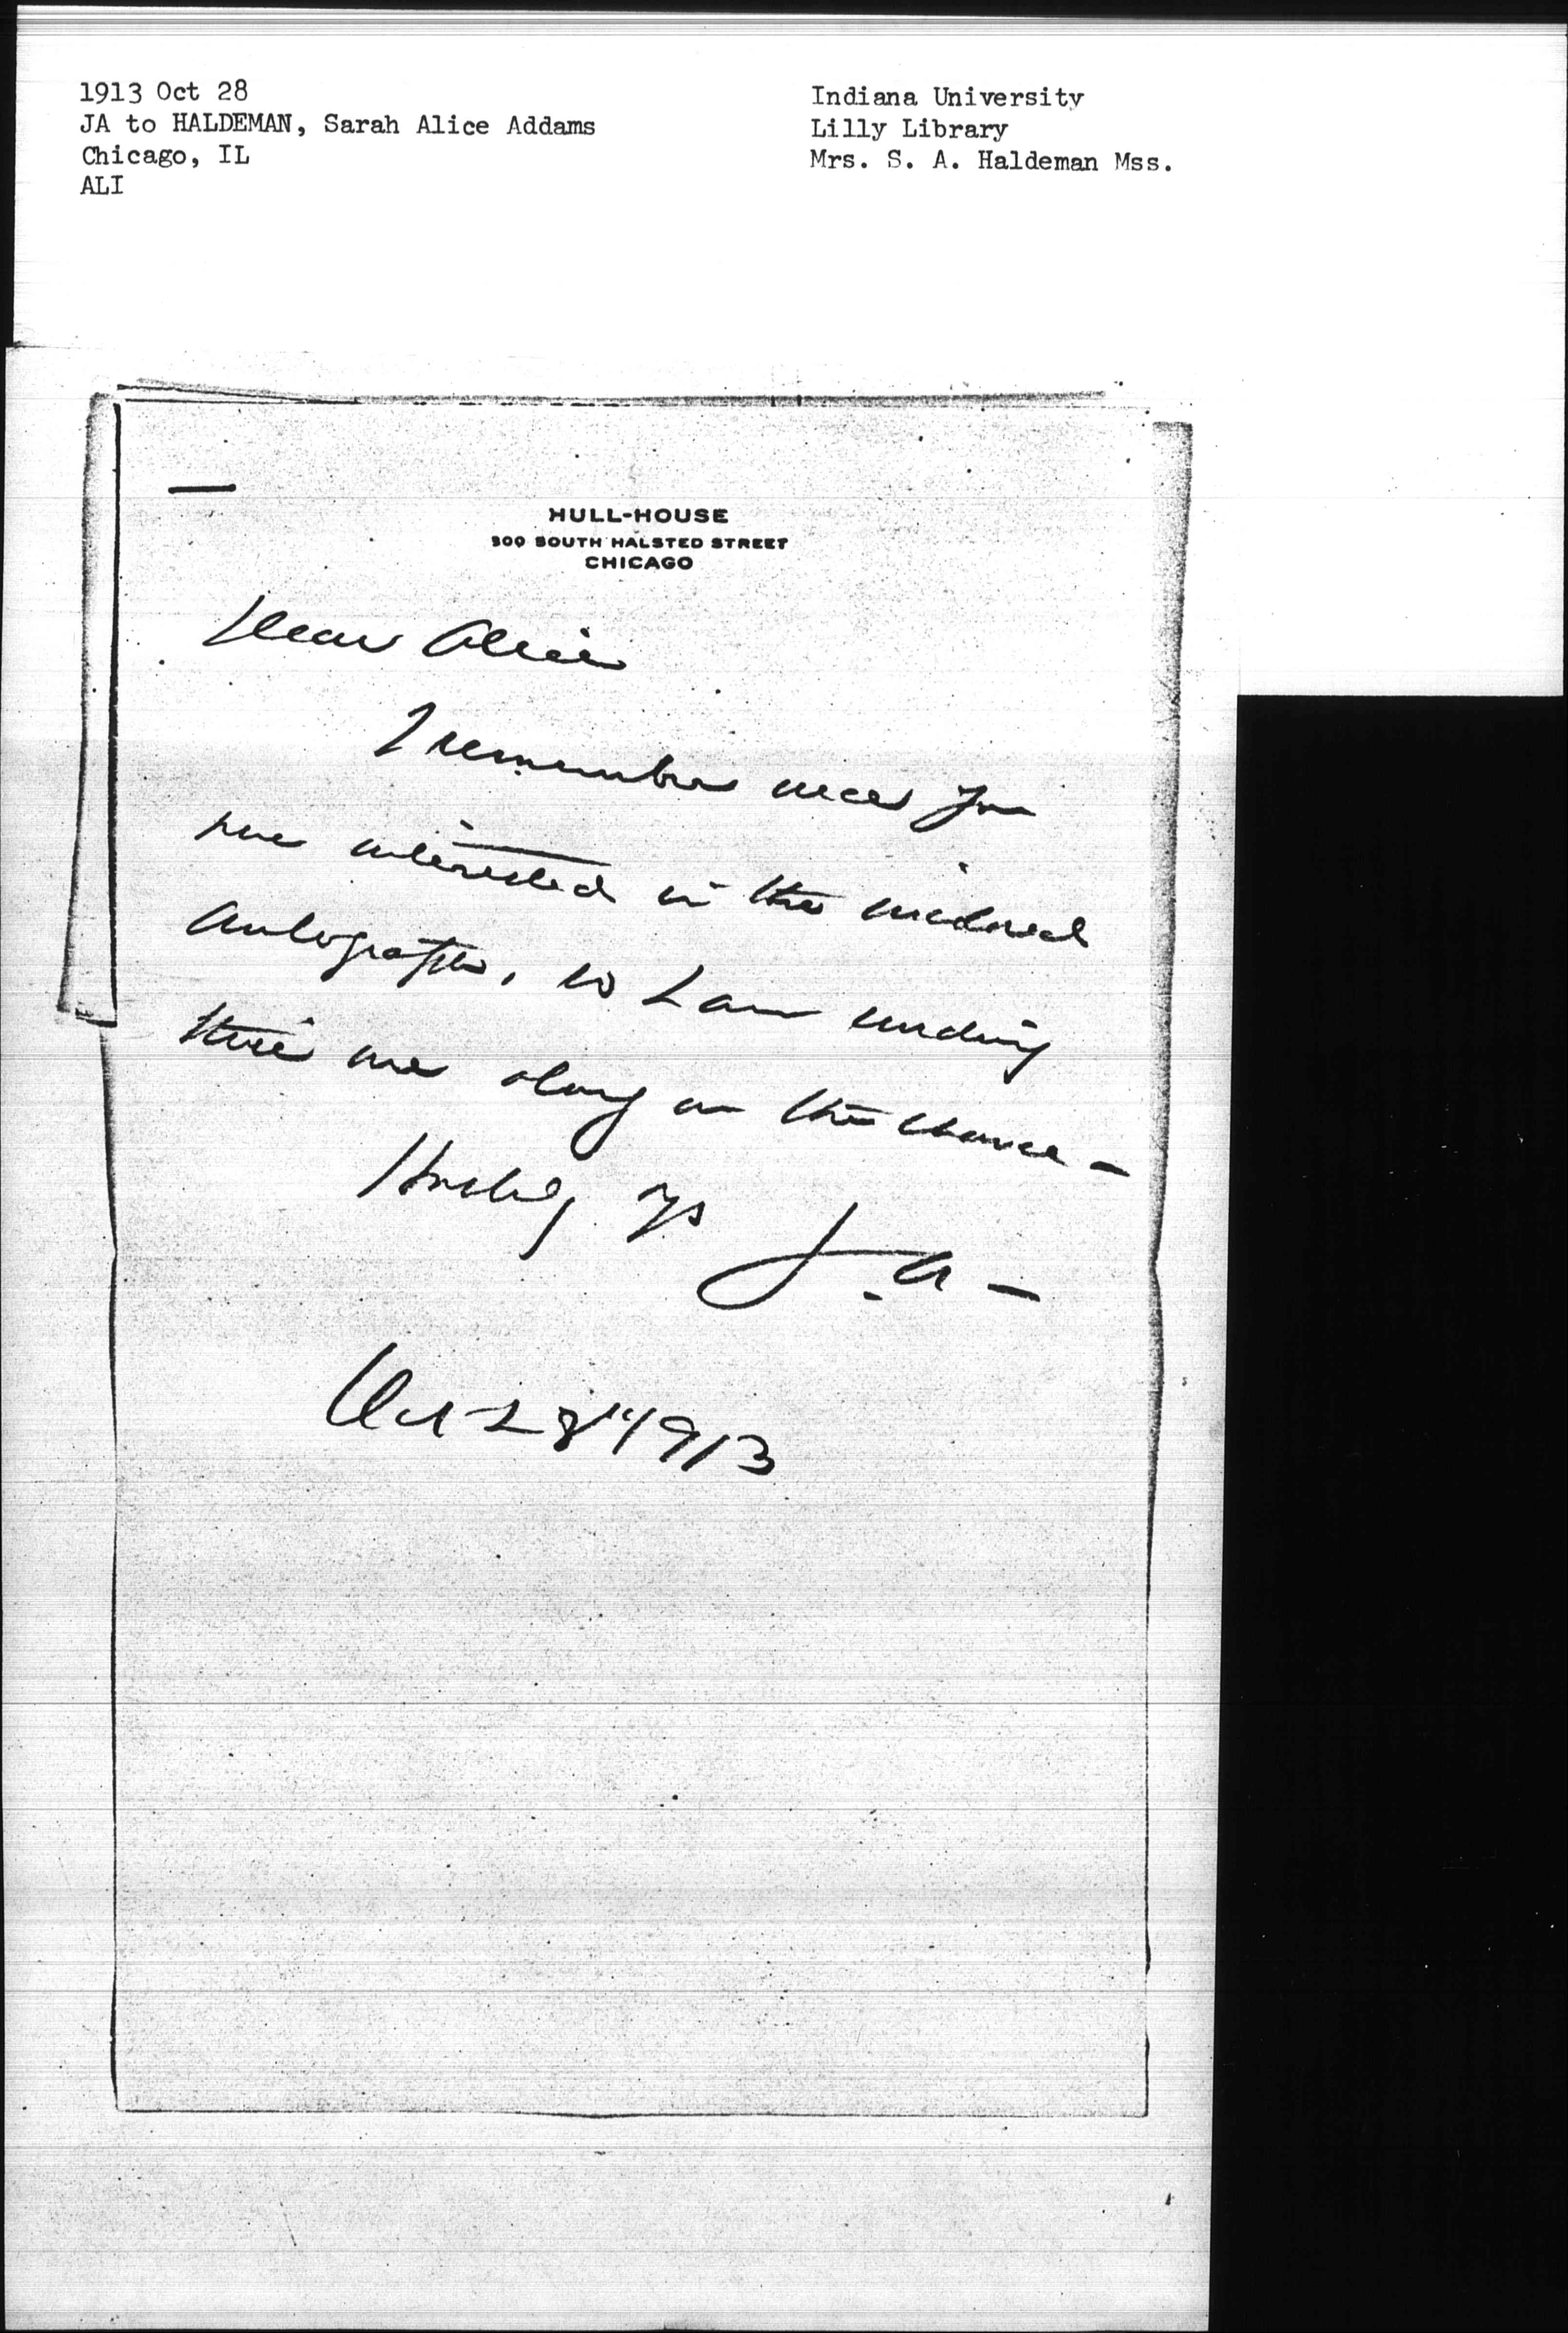 1913 Oct 28
JA to HALDEMAN, Sarah Alice Addams
Chicago, IL
ALI
Indiana University
Lilly Library
Mrs. S. A. Haldeman Mss.
HULL-HOUSE
800 SOUTH HALSTED STREET
CHICAGO
Dear Alice
I remember once you
were interested in the enclosed
autographs, so I am sending
this one along on the chance –
Hastily yrs
J. A –
Oct 28" 1913